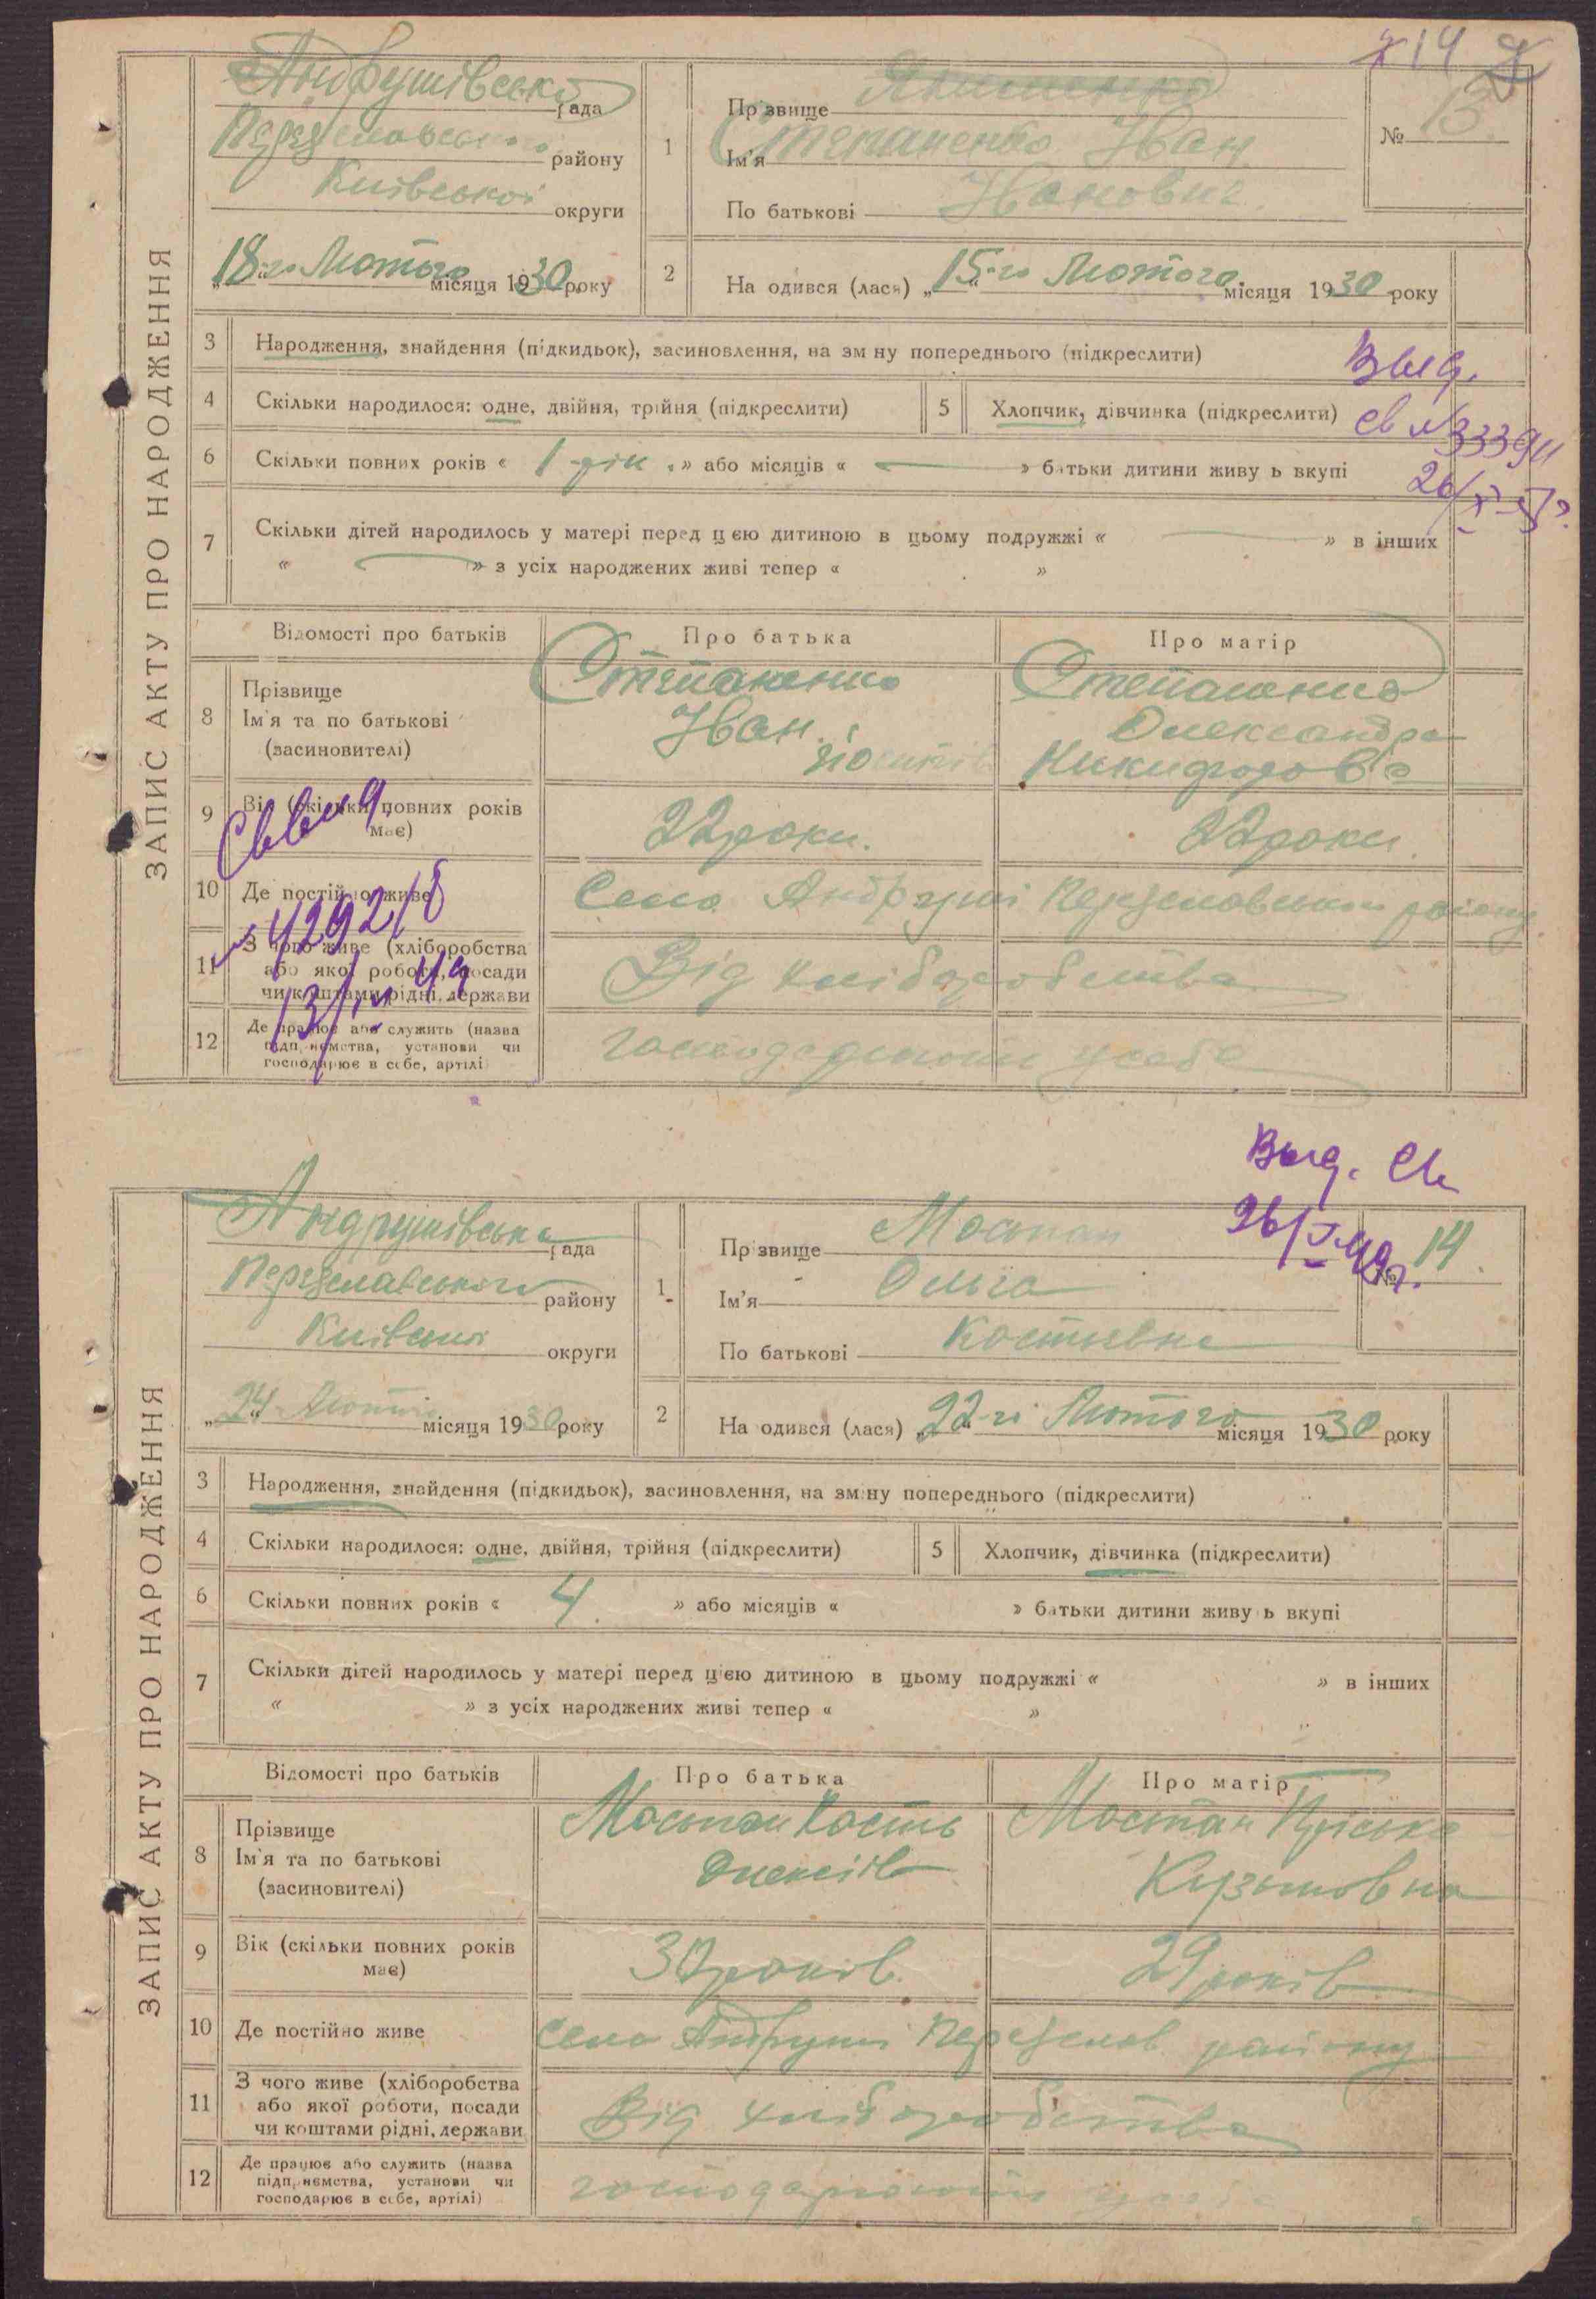 14
ЗАПИС АКТУ ПРО НАРОДЖЕННЯ
Андрушівська рада
Переяславського району
Київської округи
"18-го Лютого місяця 1930 року
1 Прізвище
Ім'я Степаненко Іван
По батькові Іванович
№ 13
2 Народився (лася) "15-го Лютого місяця 1930 року
3 Народження, знайдення (підкидьок), засиновлення, на зміну попереднього (підкреслити)
Выд.
4 Скільки народилося: одне, двійня, трійня (підкреслити)
5 Хлопчик, дівчинка (підкреслити)
св №
6 Скільки повних років « 1 рік » або місяців « — » батьки дитини живуть вкупі
26/
7 Скільки дітей народилось у матері перед цією дитиною в цьому подружжі « — » в інших
« — » з усіх народжених живі тепер « »
Відомості про батьків
Про батька
Про матір
8 Прізвище
Ім'я та по батькові
(засиновителі)
Степаненко
Іван
Степаненко
Олександра
Никифоровa
9 Вік (скільки повних років має)
22 роки.
22 роки.
Св выд
10 Де постійно живе
Село Андруші Переяславського району
№ 4292/б
11 З чого живе (хліборобства
або якої роботи, посади
чи коштами рідні, держави
Від хліборобства
13/IV 49
12 Де працює або служить (назва
підприємства, установи чи
господарює в себе, артілі)
господарюють у себе
Выд. Св
26/V-49г.
ЗАПИС АКТУ ПРО НАРОДЖЕННЯ
Андрушівська рада
Переяславського району
Київської округи
"24 Лютого місяця 1930 року
1 Прізвище Мостпан
Ім'я Ольга
По батькові Костивна
№ 14.
2 Народився (лася) "22-го Лютого місяця 1930 року
3 Народження, знайдення (підкидьок), засиновлення, на зміну попереднього (підкреслити)
4 Скільки народилося: одне, двійня, трійня (підкреслити)
5 Хлопчик, дівчинка (підкреслити)
6 Скільки повних років « 4 » або місяців « » батьки дитини живуть вкупі
7 Скільки дітей народилось у матері перед цією дитиною в цьому подружжі « » в інших
« » з усіх народжених живі тепер « »
Відомості про батьків
Про батька
Про матір
8 Прізвище
Ім'я та по батькові
(засиновителі)
Мостпан Кость
Олексіїв
Мостпан Пріська
Кузьмовна
9 Вік (скільки повних років має)
років.
29 років
10 Де постійно живе
село Андруші Переяслав. району
11 З чого живе (хліборобства
або якої роботи, посади
чи коштами рідні, держави
Від хліборобства
12 Де працює або служить (назва
підприємства, установи чи
господарює в себе, артілі)
господарюють у себе